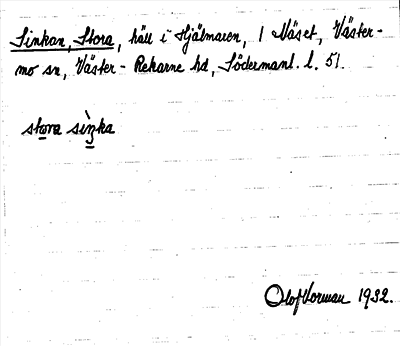 Sinkan, Stora, häll i Hjälmaren, 1 Näset, Väster-
mo sn, Väster-Rekarne hd, Södermanl. l. 51.
stora sìnka
Olof Vorman 1932.